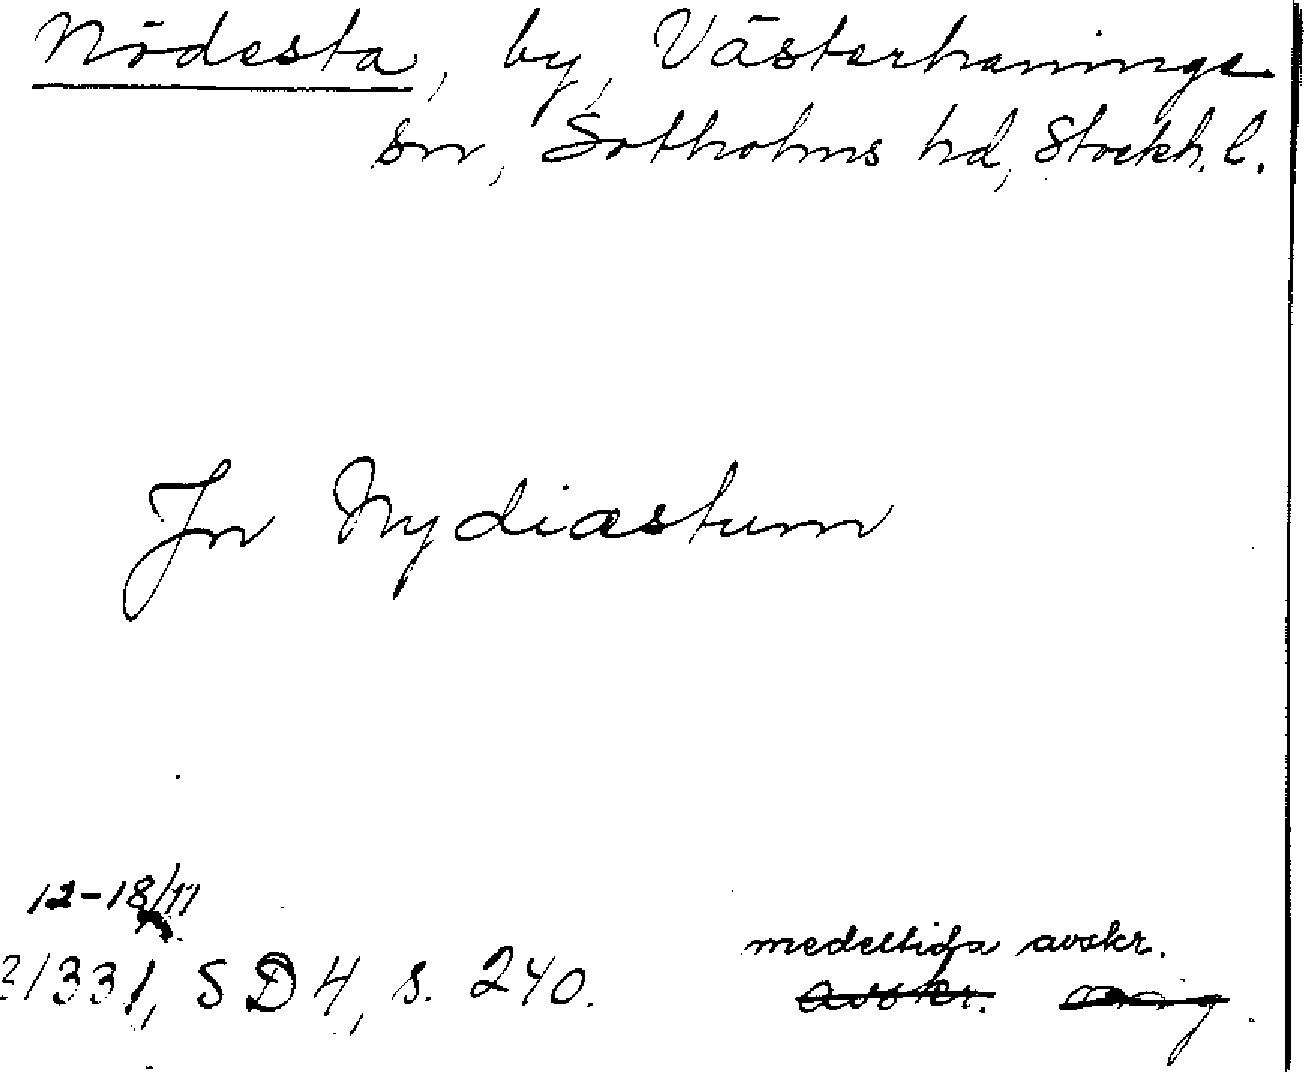 Nödesta, by, Västerhaninge
sn, Sotholms hd, Stockh. l.
Jn Nydiastum
12-18/11
1331, SD 4, s. 240.
medeltida avskr.
avskr.